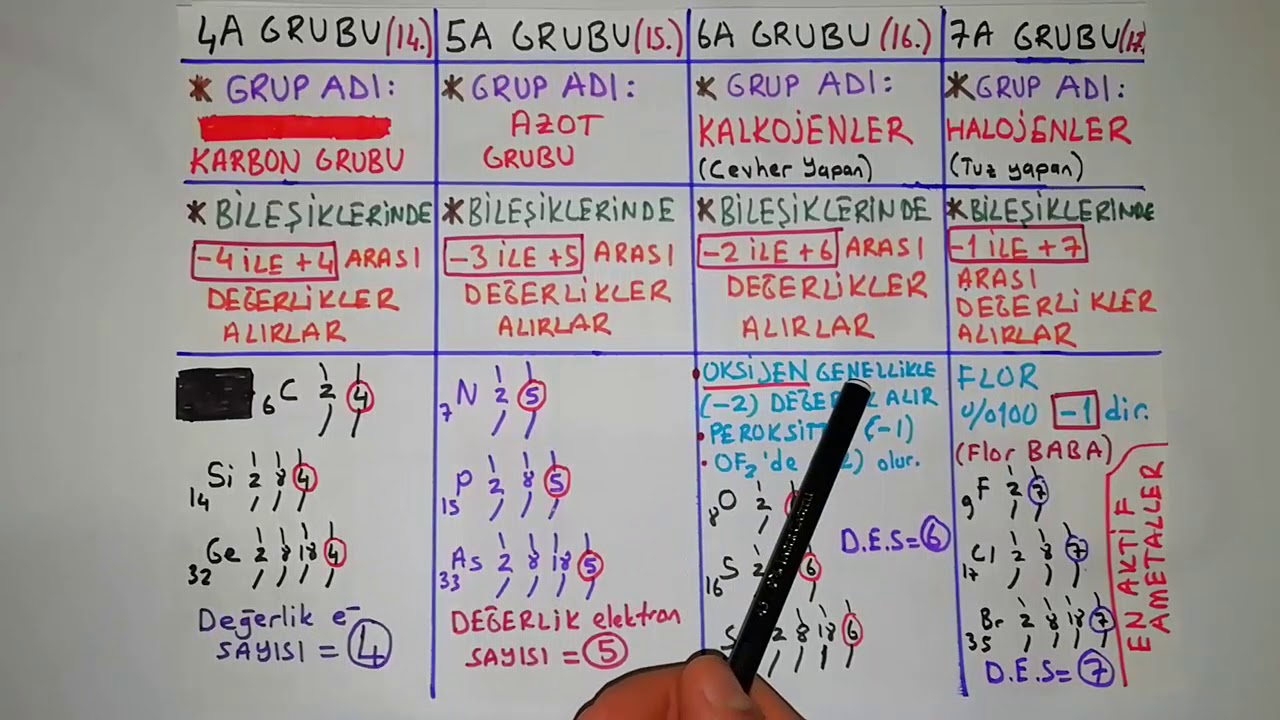 4A GRUBU(14.)
* GRUP ADI:
KARBON GRUBU
* BİLEŞİKLERİNDE
-4 İLE +4 ARASI
DEĞERLİKLER
ALIRLAR
6 C 2 4
14 Si 2 8 4
32 Ge 2 8 18 4
Değerlik e-
SAYISI = 4
5A GRUBU(15.)
* GRUP ADI:
AZOT
GRUBU
* BİLEŞİKLERİNDE
-3 İLE +5 ARASI
DEĞERLİKLER
ALIRLAR
7 N 2 5
15 P 2 8 5
33 As 2 8 18 5
DEĞERLİK elektron
SAYISI = 5
6A GRUBU (16.)
* GRUP ADI:
KALKOJENLER
(Cevher yapan)
* BİLEŞİKLERİNDE
-2 İLE +6 ARASI
DEĞERLİKLER
ALIRLAR
• OKSİJEN GENELLİKLE
(-2) ALIR
• (-1)
• OF2'de olur.
8 O 2
D.E.S= 6
16 S 2 6
2 8 18 6
7A GRUBU(17.)
* GRUP ADI:
HALOJENLER
(Tuz yapan)
* BİLEŞİKLERİNDE
-1 İLE +7
ARASI
DEĞERLİKLER
ALIRLAR
FLOR
%100 -1 dir.
(Flor BABA)
9 F 2 7
17 Cl 2 8 7
35 Br 2 8 18 7
D.E.S= 7
EN AKTİF
AMETALLER